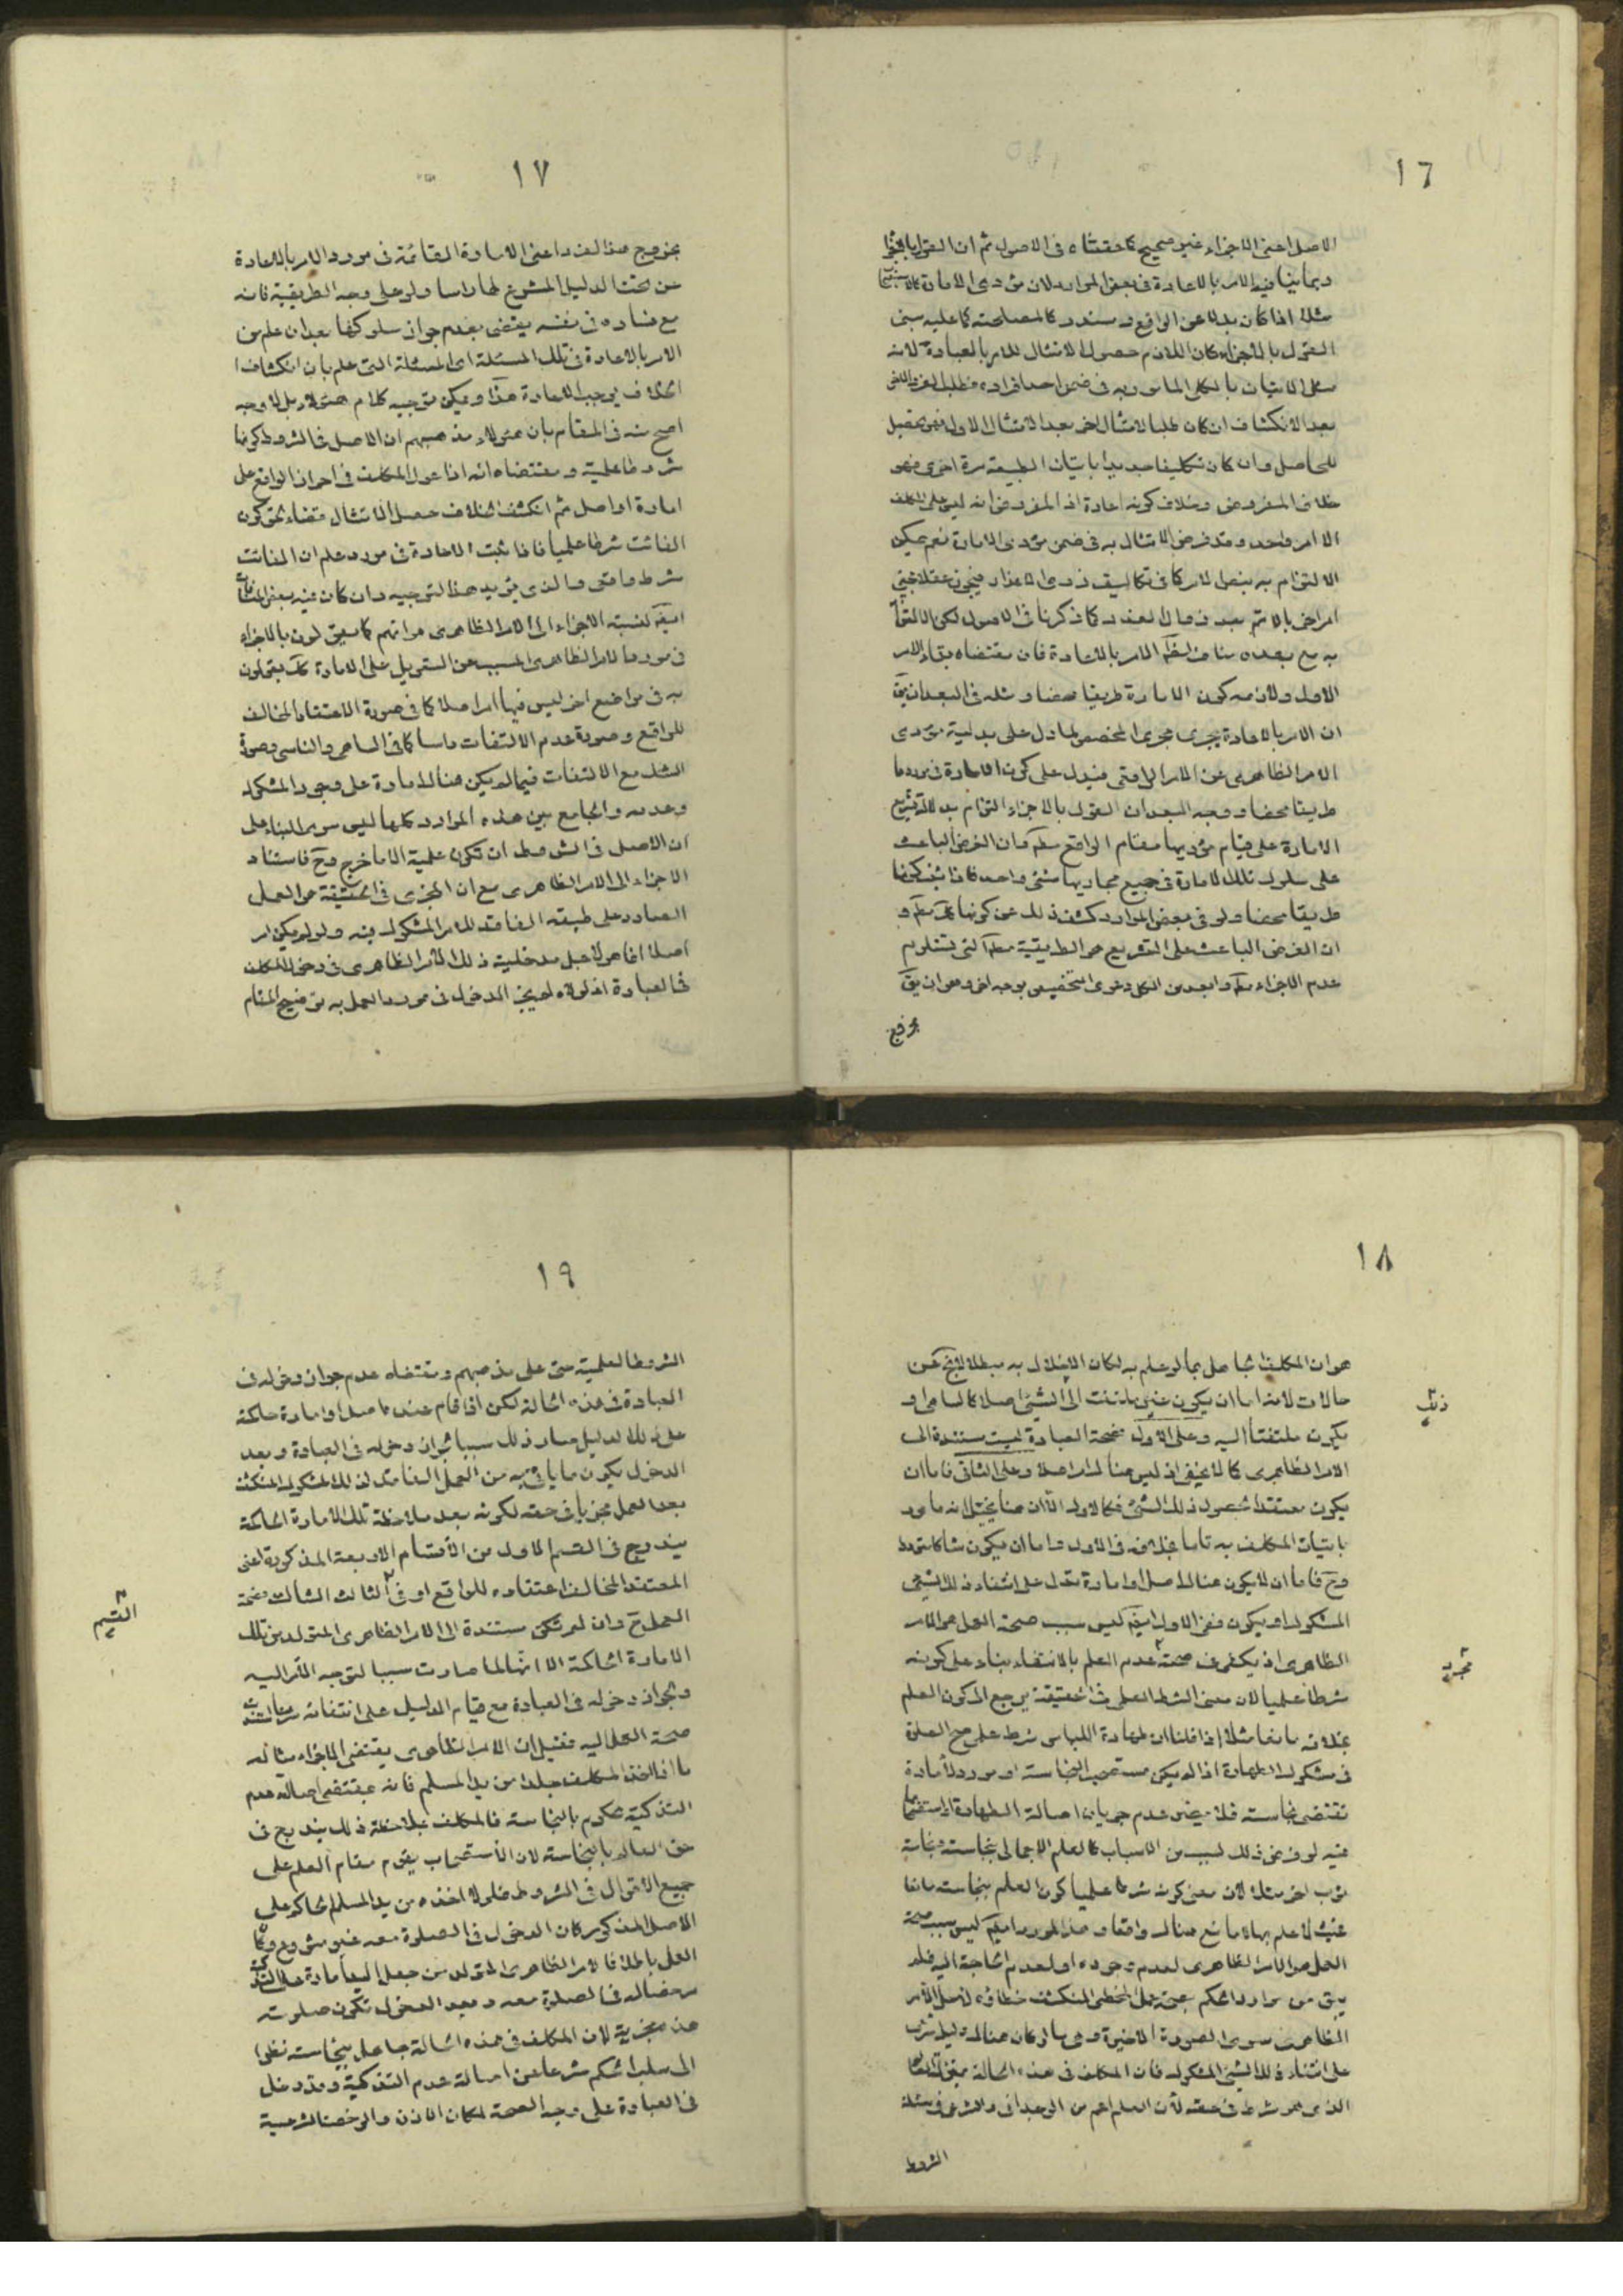 ١٦
الاصل اعنى الاجزاء غير صحيح كما حققناه فى الاصول ثم ان القول بالاجزاء
ربما ينافيه الامر بالاعادة فى بعض الموارد لان مؤدى الامارة
مثلا اذا كان بدلا عن الواقع و مستدركا لمصلحته كما عليه مبنى
القول بالاجزاء كان اللازم حصول الامتثال للامر بالعبادة لانه
بعد الانكشاف ان كان طلبا لامتثال اخر بعد الامتثال الاول فهو تحصيل
للحاصل وان كان تكليفا جديدا باتيان الطبيعة مرة اخرى فهو
خلاف المفروض وخلاف كونه اعادة اذ المفروض انه ليس على المكلف
الا امر واحد وقد فرض الامتثال به فى ضمن مؤدى الامارة نعم يمكن
الاول ولازمه كون الامارة طريقا محضا ومثله فى البعد ان يق
ان الامر بالاعادة يجرى مجرى المخصص لما دل على بدلية مؤدى
الامر الظاهرى عن الامر الواقعى فيدل على كون الامارة فى مورد ما
طريقا محضا ووجه البعد ان القول بالاجزاء التزام بدلالة تشريع
الامارة على قيام مؤديها مقام الواقع مط وان الغرض الباعث
على سلوك تلك الامارة فى جميع مجاريها شئ واحد فاذا ثبت كونها
طريقا محضا ولو فى بعض الموارد كشف ذلك عن كونها كك مط و
ان الغرض الباعث على التشريع هو الطريقية مط التى تستلزم
عدم الاجزاء مط وابعد من الكل دعوى التخصيص بوجه اخر وهو ان يق
بخروج
١٧
بخروج هذا الفرد اعنى الامارة القائمة فى مورد الامر بالاعادة
عن تحت الدليل المشرع لها راسا ولو على وجه الطريقية فانه
مع فساده فى نفسه يقتضى بعدم جواز سلوكها بعد ان علم من
الامر بالاعادة فى تلك المسئلة اى المسئلة التى علم بان انكشاف
الخلاف يوجب الاعادة هذا ويمكن توجيه كلام هؤلاء بل لا وجه
اصح منه فى المقام بان هؤلاء مذهبهم ان الاصل فى الشروط كونها
شروطا علمية ومقتضاه انه اذا عول المكلف فى احراز الواقع على
امارة او اصل ثم انكشف الخلاف حصل الامتثال قضاء لحق كون
الفائت شرطا علميا فاذا ثبت الاعادة فى مورد علم ان الفائت
شرط واقعى والذى يؤيد هذا التوجيه وان كان فيه بعض
فى مورد الامر الظاهرى المسبب عن التعويل على الامارة كك يقولون
به فى مواضع اخر ليس فيها امر اصلا كما فى صورة الاعتقاد المخالف
للواقع وصورة عدم الالتفات راسا كما فى الساهى والناسى وصورة
الشك مع الالتفات فيما لم يكن هناك امارة على وجود المشكوك
وعدمه والجامع بين هذه الموارد كلها ليس سوى البناء على
ان الاصل فى الشروط ان تكون علمية الا ما خرج وح فاستناد
الاجزاء الى الامر الظاهرى مع ان المجزى فى الحقيقة هو العمل
الصادر على طبقه الفاقد للامر المشكوك فيه ولو لم يكن امر
اصلا انما هو لاجل مدخلية ذلك الامر الظاهرى فى دخول المكلف
فى العبادة اذ لولاه لم يجز الدخول فى مورد العمل به توضيح المقام
١٨
هو ان المكلف الجاهل بما لو علم به لكان الاخلال به مبطلا لا يخ عن
حالات لانه اما ان يكون غير ملتفت الى الشئ اصلا كالساهى او
يكون ملتفتا اليه وعلى الاول فصحة العبادة ليست مستندة الى
الامر الظاهرى كما لا يخفى اذ ليس هناك امر اصلا وعلى الثانى فاما ان
يكون معتقدا لحصول ذلك الشئ فكالاول الا ان هنا يتخيل انه مامور
باتيان المكلف به تاما بخلافه فى الاول واما ان يكون شاكا مترددا
وح فاما ان لا يكون هناك اصل او امارة تدل على انتفاء ذلك الشئ
المشكوك او يكون ففى الاول ايض ليس سبب صحة العمل هو الامر
الظاهرى اذ يكفى فى صحة عدم العلم بالانتفاء بناء على كونه
شرطا علميا لان معنى الشرط العلمى فى الحقيقة يرجع الى كون العلم
بخلافه مانعا مثلا اذا قلنا ان طهارة اللباس شرط علمى صح الصلوة
فى مشكوك الطهارة اذا لم يكن مستصحب النجاسة او موردا لامارة
تقتضى نجاسته فلا يضر عدم جريان اصالة الطهارة
فيه لو فرض ذلك لسبب من الاسباب كالعلم الاجمالى بنجاسته ونجاسة
ثوب اخر مثلا لان معنى كونه شرطا علميا كون العلم بنجاسته مانعا
فحيث لا علم بها لا مانع هناك واقعا
العمل هو الامر الظاهرى لعدم وجوده او لعدم الحاجة اليه فلم
يبق من موارد الحكم بصحة عمل المخطى المنكشف خطاؤه لاجل الامر
الظاهرى سوى الصورة الاخيرة وهى ما لو كان هناك دليل
على انتفاء ذلك الشئ المشكوك فان المكلف فى هذه الحالة
الذى هو شرط فى حقه لان العلم اعم من الوجدانى والشرعى فى مسئلة
الشروط
مجرد
١٩
الشروط العلمية حتى على مذهبهم ومقتضاه عدم جواز دخوله فى
العبادة فى هذه الحالة لكن اذا قام عنده اصل او امارة حاكمة
على ذلك الدليل صار ذلك سببا لجواز دخوله فى العبادة وبعد
الدخول يكون ما ياتى به من العمل الفاقد لذلك المشكوك المنكشف
بعد العمل مجزيا فى حقه لكونه بعد ملاحظة تلك الامارة الحاكمة
يندرج فى القسم الاول من الاقسام الاربعة المذكورة اعنى
المعتقد المخالف اعتقاده للواقع او فى الثالث الشاك فصحة
العمل ح وان لم تكن مستندة الى الامر الظاهرى المتولد من تلك
الامارة الحاكمة الا انها لما صارت سببا لتوجه الامر اليه
ولجواز دخوله فى العبادة مع قيام الدليل على انتفائه
صحة العمل اليه فقيل ان الامر الظاهرى يقتضى الاجزاء مثاله
ما اذا اخذ المكلف جلدا من يد المسلم فانه بمقتضى اصالة عدم
التذكية محكوم بالنجاسة فالمكلف بملاحظة ذلك يندرج فى
حق العالم بالنجاسة لان الاستصحاب يقوم مقام العلم على
جميع الاقوال فى الشروط فلولا اخذه من يد المسلم الحاكم على
الاصل المذكور كان الدخول فى الصلوة معه غير مشروع
العمل باطلا فالامر الظاهرى المتولد من جعل اليد امارة على التذكية
مرخصا له فى الصلوة معه وبعد الدخول تكون صلوته
هذه مجزية لان المكلف فى هذه الحالة جاهل بنجاسته نظرا
الى سلب الحكم شرعا عن اصالة عدم التذكية وقد دخل
فى العبادة على وجه الصحة لمكان الاذن والرخصة الشرعية
القسم